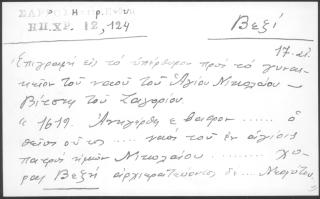 ΗΠ.ΧΡ. 12, 124
Βεξί
17.αἰ.
Ἐπιγραφή εἰς τό ὑπέρθυρον πρός τό γυναι-
κεῖον τοῦ ναοῦ τοῦ Ἁγίου Νικολάου –
Βίτσης τοῦ Ζαγορίου.
« 1619. Ἀνηγέρθη ἐ βαθρον ...... ὁ
θεῖος οὗτος .... ναός τοῦ ἐν ἁγίοις
πατρός ἡμῶν Νικολάου ........ χώ-
ρας Βεξή ἀρχιερατεύοντος δε ..